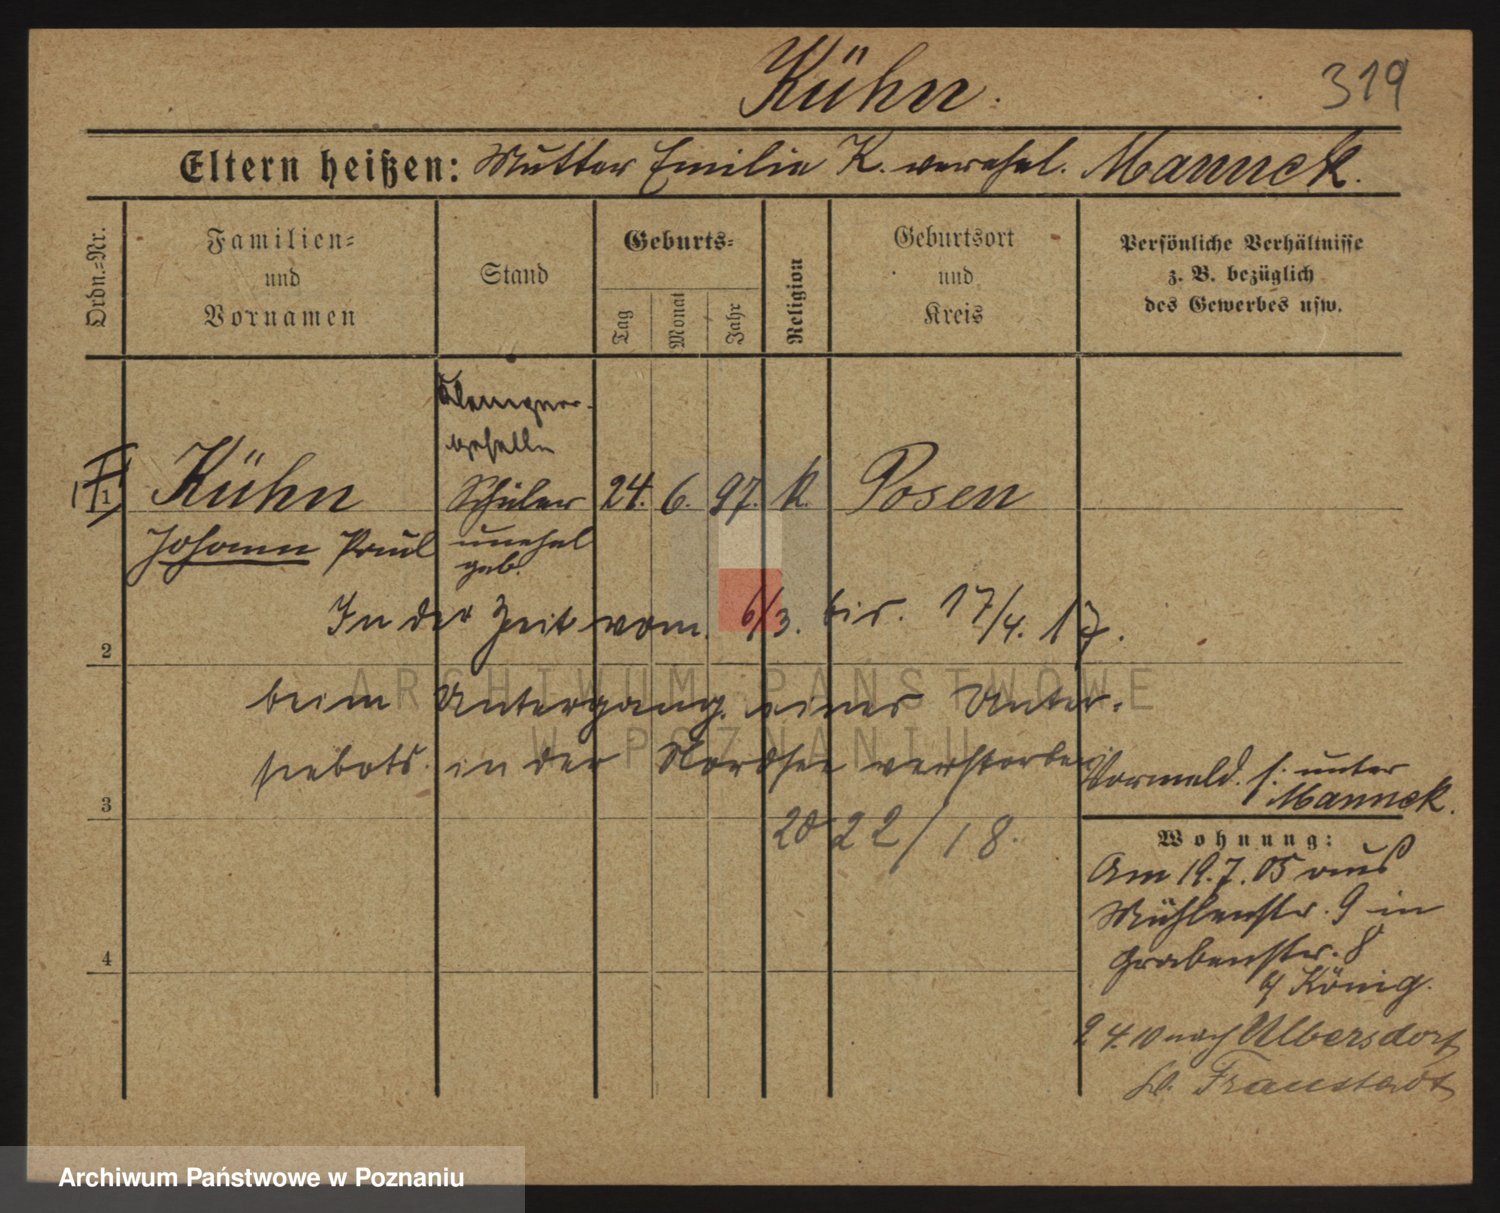 Kühn.
319
Eltern heißen: Mutter Emilie K. verehel. Mannck.
Ordn.=Nr.
Familien=
und
Vornamen
Stand
Geburts=
Tag
Monat
Jahr
Religion
Geburtsort
und
Kreis
Persönliche Verhältnisse
z. B. bezüglich
des Gewerbes usw.
Klempner-
geselle
1 Kühn Schüler 24. 6. 97. k. Posen
Johann Paul unehel
geb.
In der Zeit vom 6/3. bis. 17/4. 17.
2
beim Untergang eines Unter-
seebots in der Nordsee verstorben
ARCHIWUM PAŃSTWOWE
W POZNANIU
3
2022/18.
Vormuld. s. unter
Mannck.
Wohnung:
Am 19.7.05 aus
Mühlenstr. 9 in
Grabenstr. 8
b/ König.
4
2.4.10 nach Ulbersdorf
Fraustadt
Archiwum Państwowe w Poznaniu